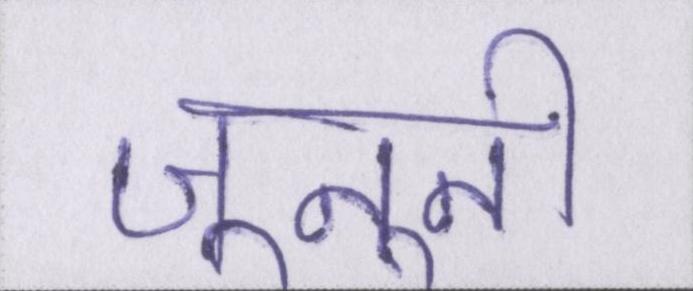 जूनूनी